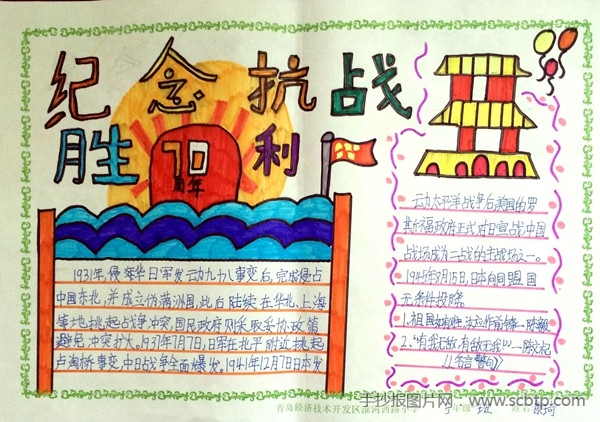 纪念抗战
胜70利
周年
1931年,侵华日军发动九一八事变后,完成侵占
中国东北,并成立伪满洲国,此后陆续在华北、上海
等地挑起战争冲突,国民政府则采取妥协政策
避免冲突扩大。1937年7月7日,日军在北平附近挑起
卢沟桥事变,中日战争全面爆发。1941年12月7日日本发
动太平洋战争后美国的罗
斯福政府正式对日宣战,中国
战场成为二战的主战场之一。
1945年8月15日,日本向同盟国
无条件投降。
1.祖国如有难,汝应作前锋—陈毅
2."有我无敌,有敌无我"—陈
《名言警句》
青岛经济技术开发区淮河西路小学
手抄报图片网-www.scbtp.com